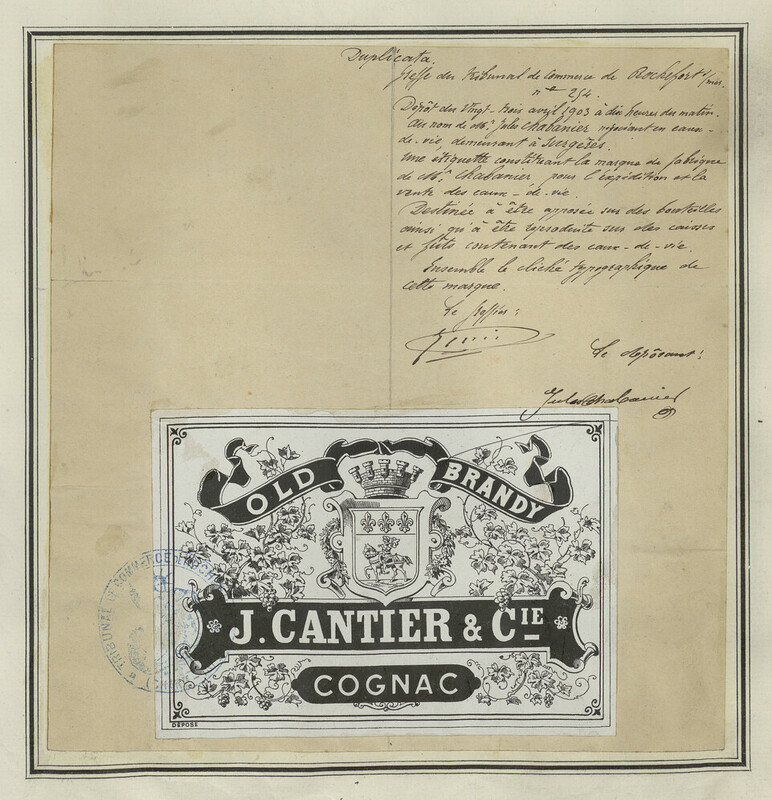 Duplicata.
Greffe du tribunal de commerce de Rochefort s/mer.
n° 254.
Dépôt du vingt-trois avril 1903 à dix heures du matin.
Au nom de Mr. Jules Chabanier négociant en eaux-
de-vie, demeurant à Surgères.
Une étiquette constituant la marque de fabrique
de Mr. Chabanier pour l'expédition et la
vente des eaux-de-vie.
Destinée à être apposée sur des bouteilles
ainsi qu'à être reproduite sur des caisses
et fûts contenant des eaux-de-vie.
Ensemble le cliché typographique de
cette marque.
Le greffier:
Le déposant:
Jules Chabanier
OLD BRANDY
J. CANTIER & CIE
COGNAC
DÉPOSÉ
TRIBUNAL DE COMMERCE DE ROCHE